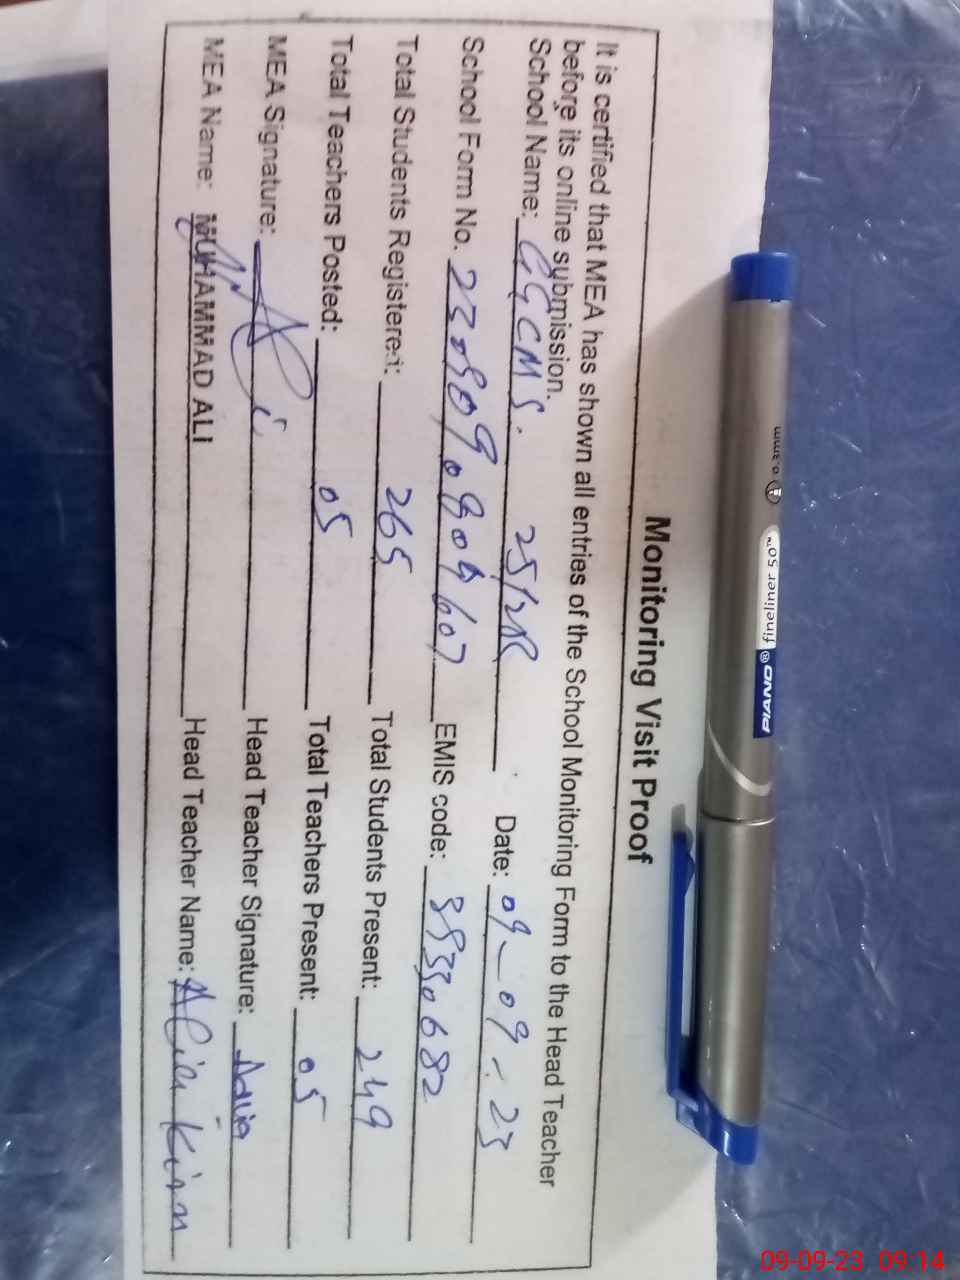 Monitoring Visit Proof
It is certified that MEA has shown all entries of the School Monitoring Form to the Head Teacher
before its online submission.
School Name: GGCMS. 25/2R Date: 09-09-23
School Form No. EMIS code:
Total Students Registered: 265 Total Students Present: 249
Total Teachers Posted: 05 Total Teachers Present: 05
MEA Signature: Ali Head Teacher Signature:
MEA Name: MUHAMMAD ALI Head Teacher Name: Kiran
PIANO® fineliner 50™ 0.3mm
09-09-23 09:14